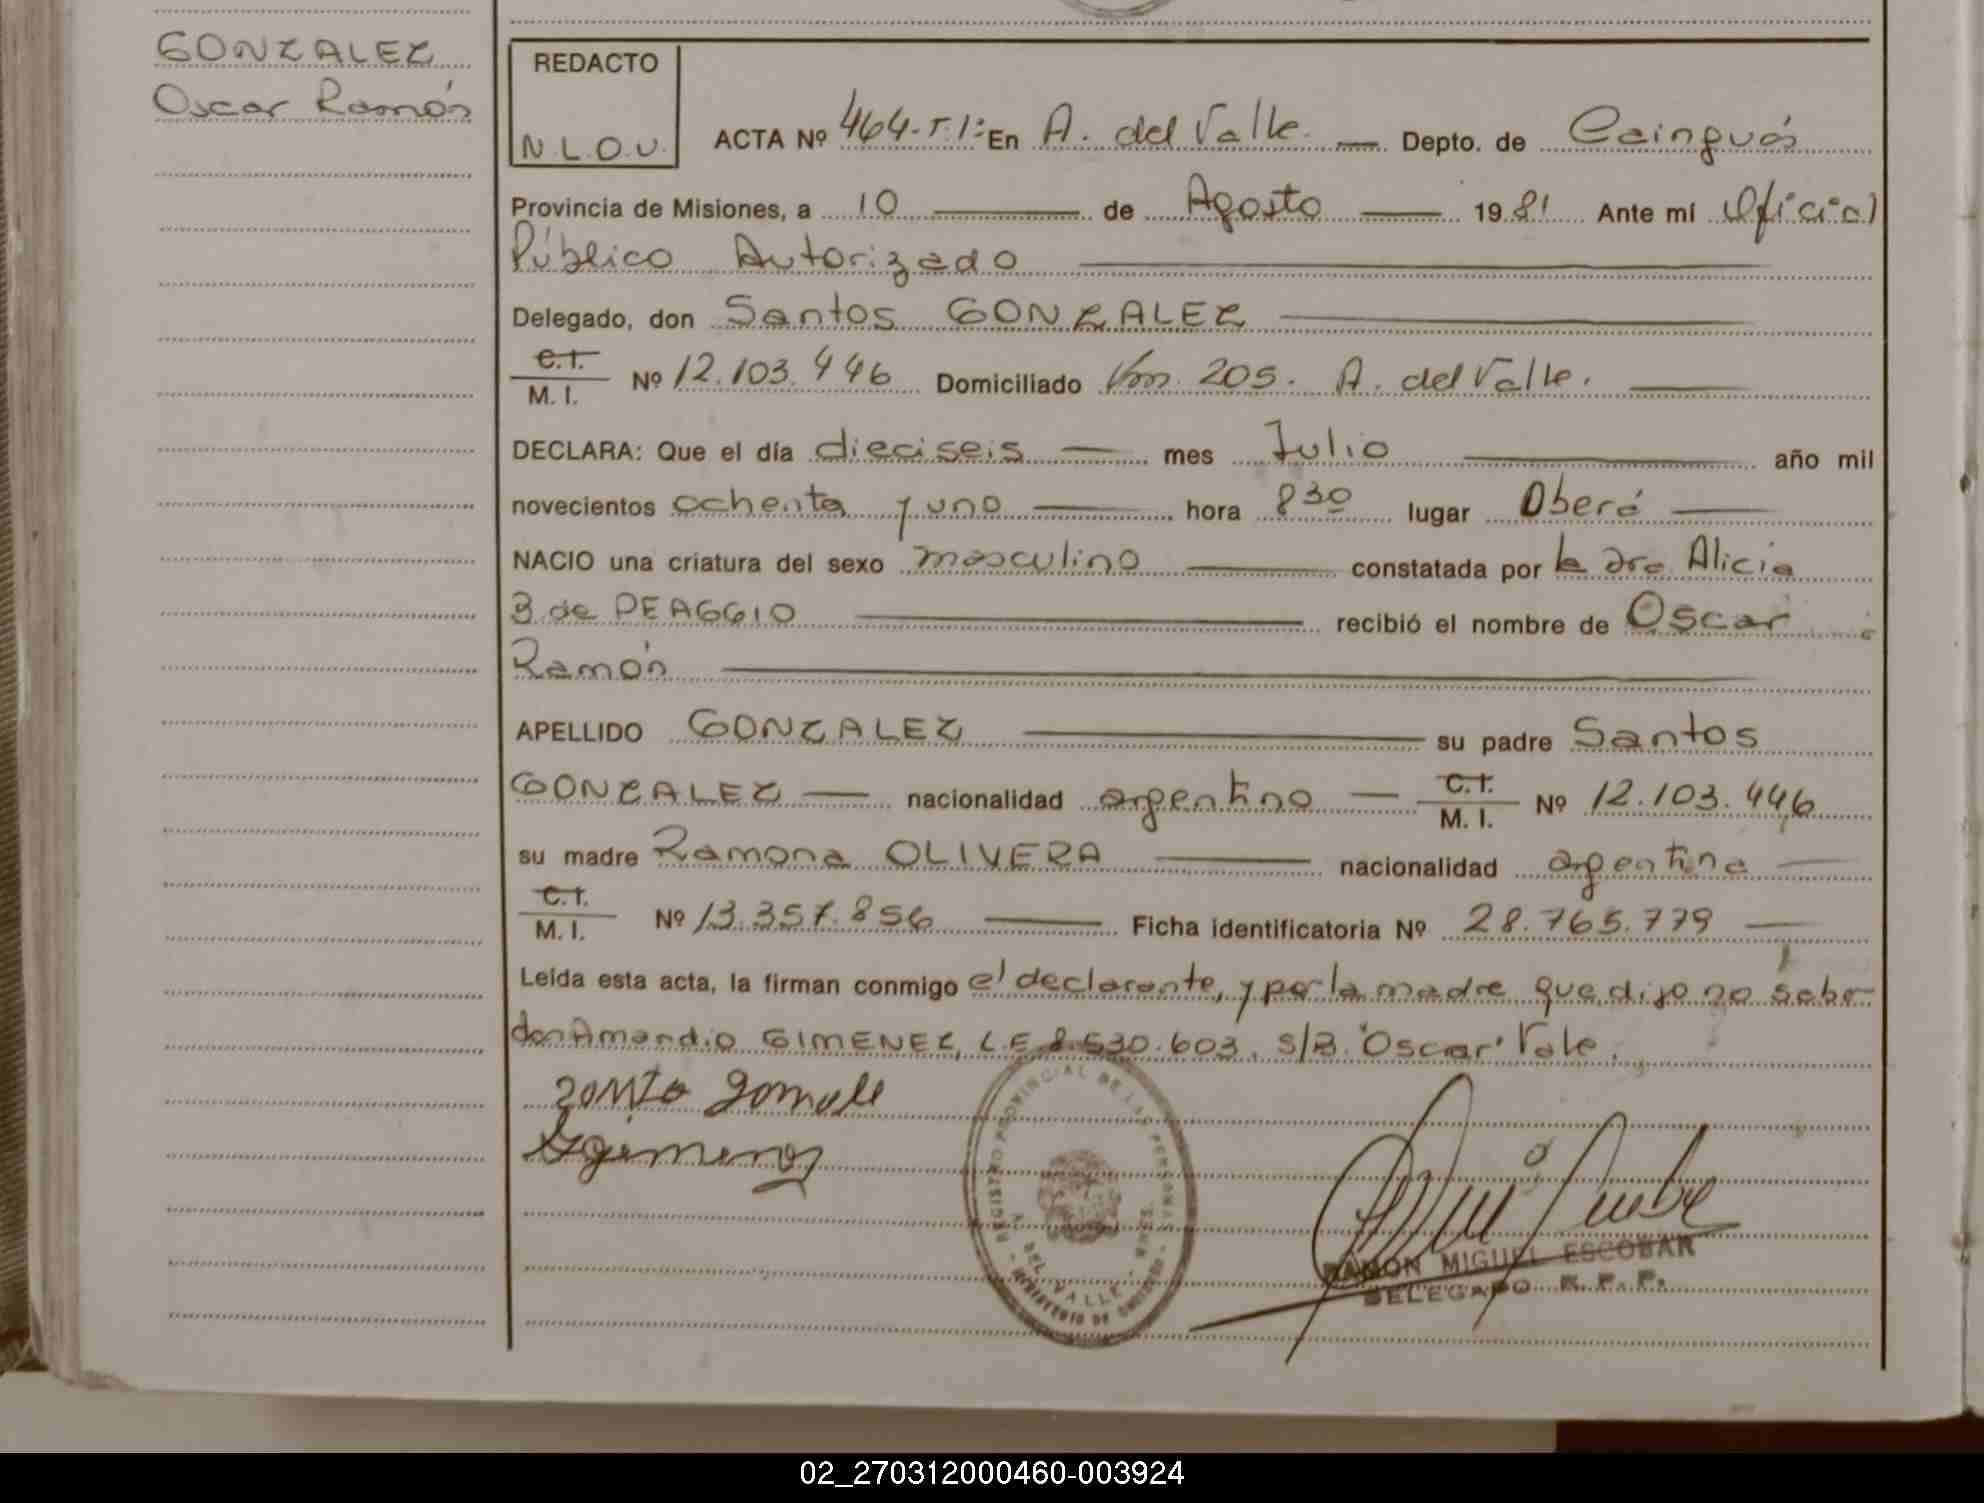 GONZALEZ
Oscar Ramón
REDACTO
N.L.O.V.
ACTA Nº 464-T.1: En A. del Valle. — Depto. de Cainguás
Provincia de Misiones, a 10 — de Agosto — 1981 Ante mí Oficial
Público Autorizado
Delegado, don Santos GONZALEZ
C.I. M. I. Nº 12.103.446 Domiciliado Km. 205. A. del Valle.
DECLARA: Que el día dieciseis — mes Julio — año mil
novecientos ochenta y uno — hora 8 30 lugar Oberá —
NACIO una criatura del sexo masculino — constatada por la Dra. Alicia
B. de PEAGGIO — recibió el nombre de Oscar
Ramón
APELLIDO GONZALEZ — su padre Santos
GONZALEZ — nacionalidad argentino — C.I. M. I. Nº 12.103.446
su madre Ramona OLIVERA — nacionalidad argentina —
C.I. M. I. Nº 13.357.856 — Ficha identificatoria Nº 28.765.779 —
Leída esta acta, la firman conmigo el declarante, y por la madre que dijo no saber
don Amandio GIMENEZ, L.E 8.530.603. S/B. "Oscar" Vale.
REGISTRO PROVINCIAL DE LAS PERSONAS
A. DEL VALLE - MNES.
MINISTERIO DE GOBIERNO
RAMON MIGUEL ESCOBAR
DELEGADO R. P. P.
02_270312000460-003924